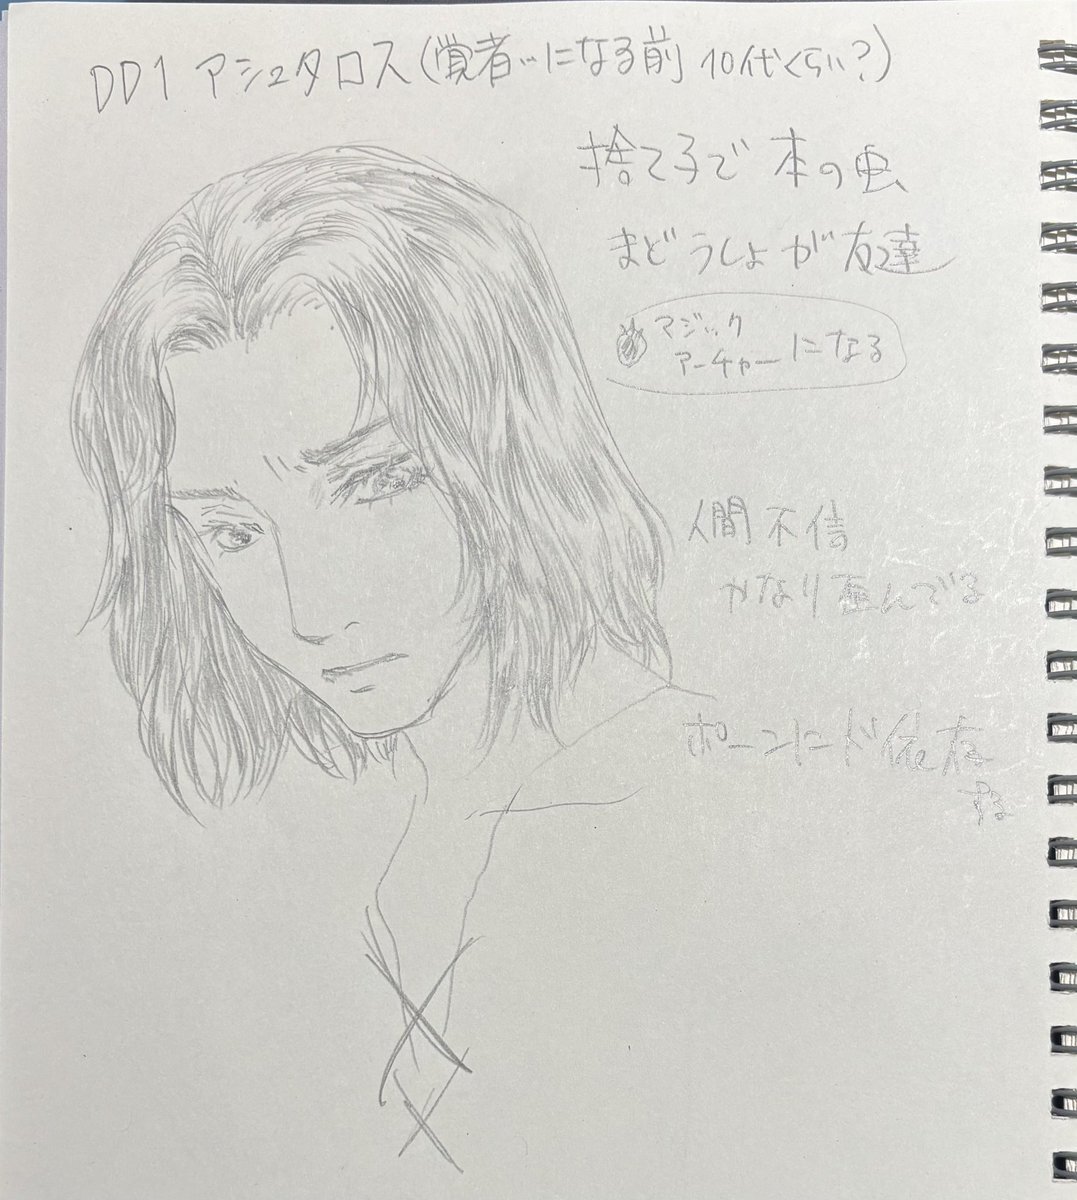 DD1 アシュタロス(覚者…になる前 10代くらい?)
捨て子で 本の虫
まどうしょが友達
マジック
アーチャーになる
人間不信
かなり歪んでる
ポーントード依存
する